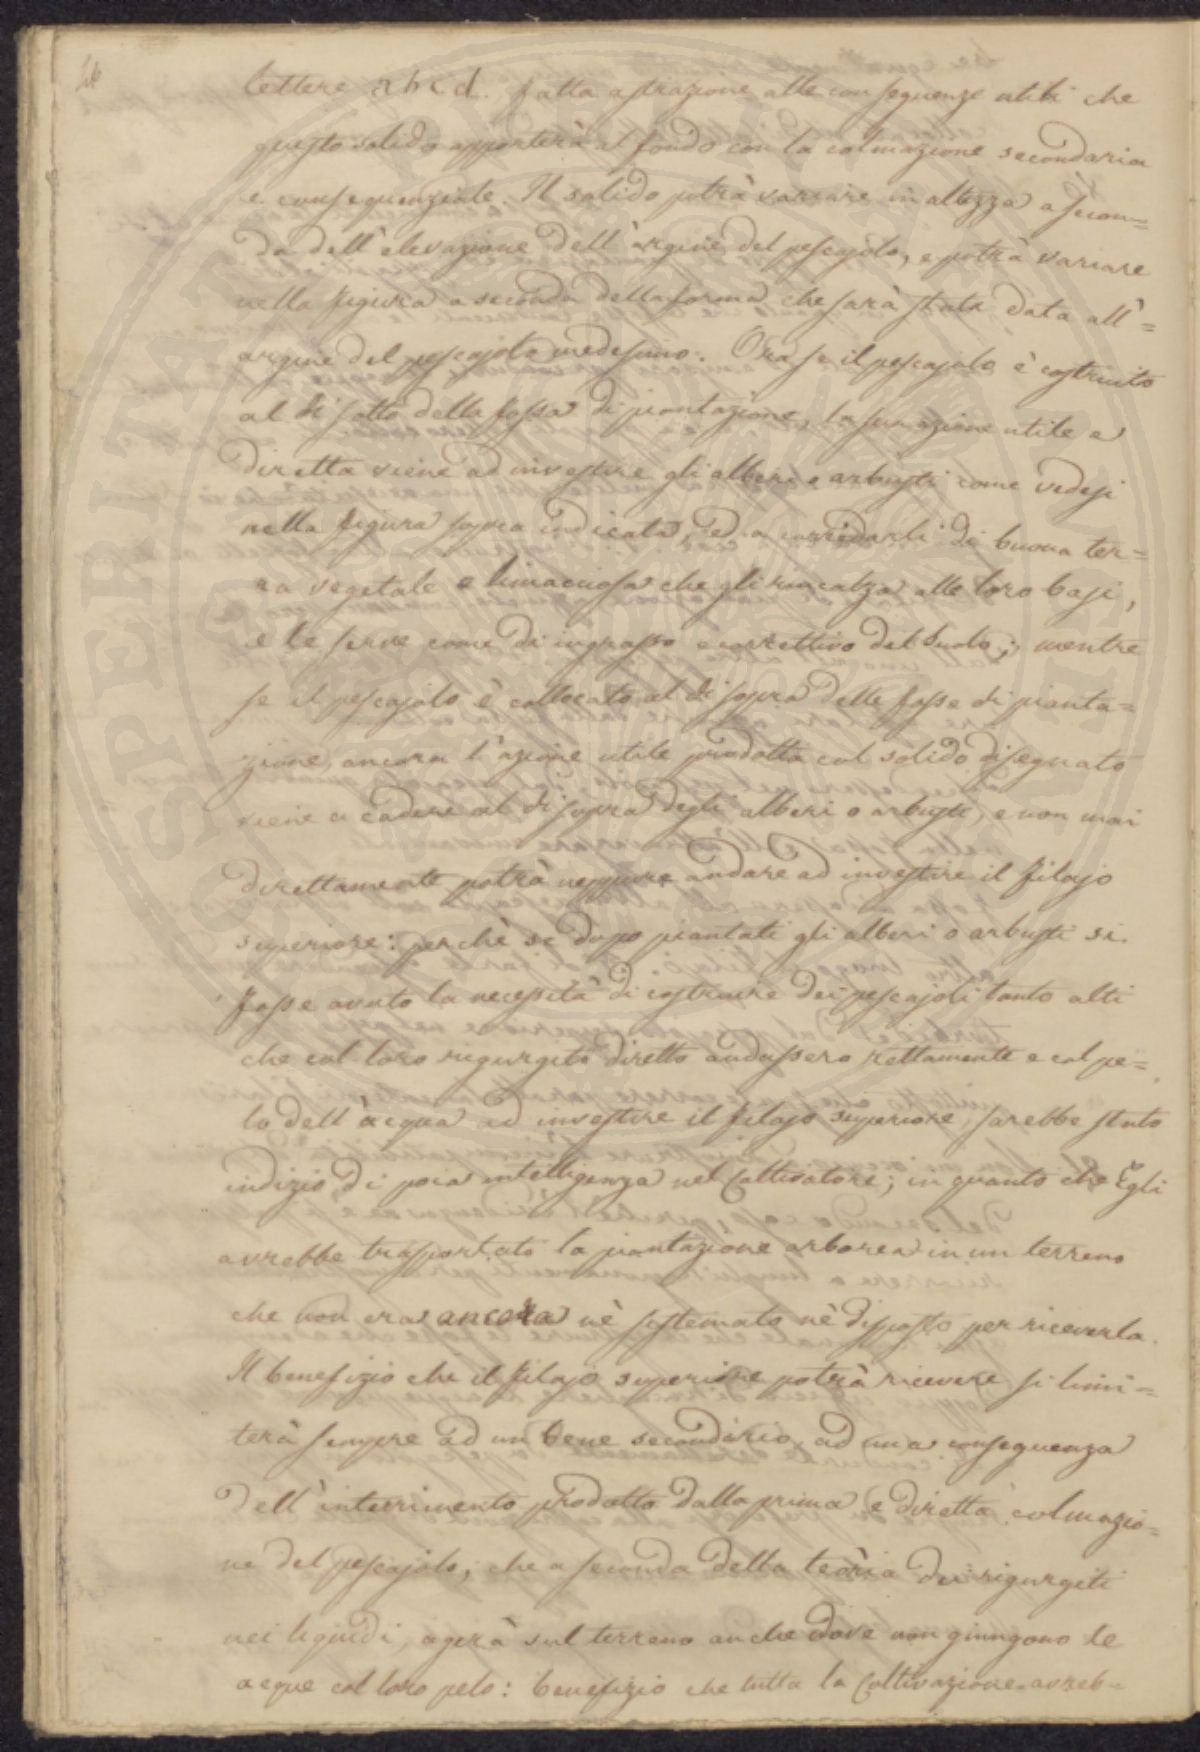 46
lettere abcd. fatta astrazione alle conseguenze utili che
questo solido apporterà al fondo con la colmazione secondaria
e consequenziale. Il solido potrà variare in altezza a secon=
da dell'elevazione dell'argine del pescajolo, e potrà variare
nella figura a seconda della forma che sarà stata data all'=
argine del pescajolo medesimo. Ora se il pescajolo è costruito
al di sotto della fossa di piantazione, la sua azione utile e
diretta viene ad investire gli alberi e arbusti come vedesi
nella figura sopra indicata, ed a corredarli di buona ter=
ra vegetale e limacciosa che gli rincalza alle loro basi,
e le serve come di ingrasso e correttivo del suolo; mentre
se il pescajolo è collocato al di sopra delle fosse di pianta=
zione, ancora l'azione utile prodotta col solido disegnato
viene a cadere al di sopra degli alberi o arbusti, e non mai
direttamente potrà neppure andare ad investire il filajo
superiore: perchè se dopo piantati gli alberi o arbusti si
fosse avuto la necessità di costruire dei pescajoli tanto alti
che col loro rigurgito diretto andassero rettamente e col pe=
lo dell'acqua ad investire il filajo superiore, sarebbe stato
indizio di poca intelligenza nel Coltivatore; in quanto che Egli
avrebbe trasportato la piantazione arborea in un terreno
che non era ancora nè sistemato nè disposto per riceverla.
Il benefizio che il filajo superiore potrà ricevere si limi=
terà sempre ad un bene secondario, ad una conseguenza
dell'interrimento prodotto dalla prima e diretta colmazio=
ne del pescajolo, che a seconda della teoria dei rigurgiti
nei liquidi, agirà sul terreno anche dove non giungono le
acque col loro pelo: benefizio che tutta la Coltivazione avreb=
SPERITAT